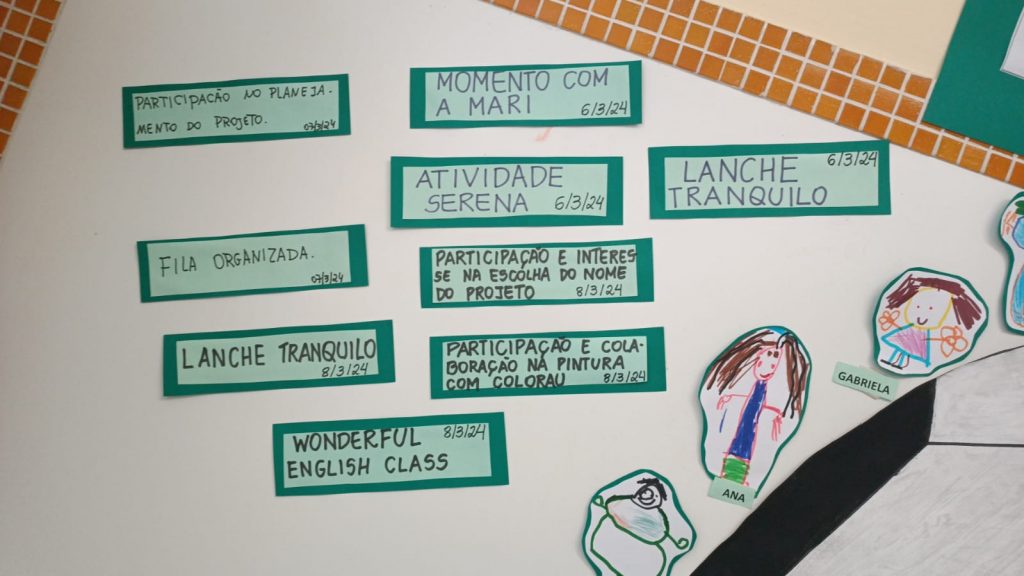 PARTICIPACÃO NO PLANEJA-
MENTO DO PROJETO. 07/3/24
MOMENTO COM
A MARI 6/3/24
ATIVIDADE
SERENA 6/3/24
6/3/24
LANCHE
TRANQUILO
FILA ORGANIZADA.
07/3/24
PARTICIPAÇÃO E INTERES
SE NA ESCOLHA DO NOME
DO PROJETO 8/3/24
LANCHE TRANQUILO
8/3/24
PARTICIPAÇÃO E COLA-
BORAÇÃO NA PINTURA
COM COLORAU 8/3/24
WONDERFUL 8/3/24
ENGLISH CLASS
GABRIELA
ANA